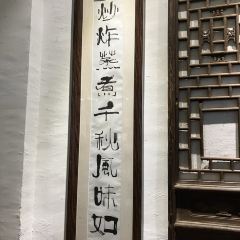 炒炸蒸煮千秋风味如